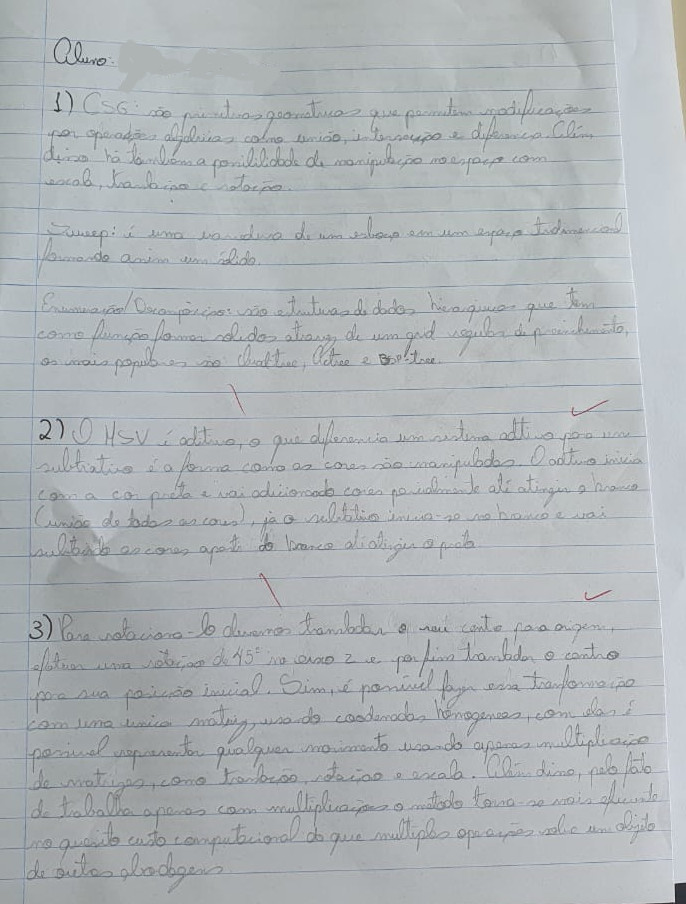 Aluno:
1) CSG: são primitivas geometricas que permitem modificações
por operações algébricas como união, interseção e diferença. Além
disso há também a possibilidade de manipulação no espaço com
escala, translação e rotação.
Sweep: é uma varredura de um esboço em um espaço tridimensional
formando assim um sólido.
Enumeração/Decomposição: são estruturas de dados hierarquicas que tem
como função formar solidos atraves de um grid regular de preenchimento,
os mais populares são Quadtree, Octree e
2) O HSV é aditivo, o que diferencia um sistema aditivo para um
subtrativo é a forma como as cores são manipuladas. O aditivo inicia
com a cor preta e vai adicionado cores parcialmente até atingir o branco
(união de todas as cores), já o subtrativo inicia-se no branco e vai
as cores apartir do branco até atingir o preto.
3) Para rotaciona-lo devemos transladar o seu centro para origem,
efetuar uma rotação de 45° no eixo z e por fim transladar o centro
para sua posição inicial. Sim, é possivel fazer essa transformação
com uma unica matriz, usando coordenadas homogeneas, com elas é
possivel representar qualquer movimento usando apenas multiplicação
de matrizes, como translação, rotação e escala. Além disso, pelo fato
de trabalha apenas com multiplicações o método torna-se mais eficiente
no quesito custo computacional do que multiplas operações sobre um objeto
de outras abordagens.